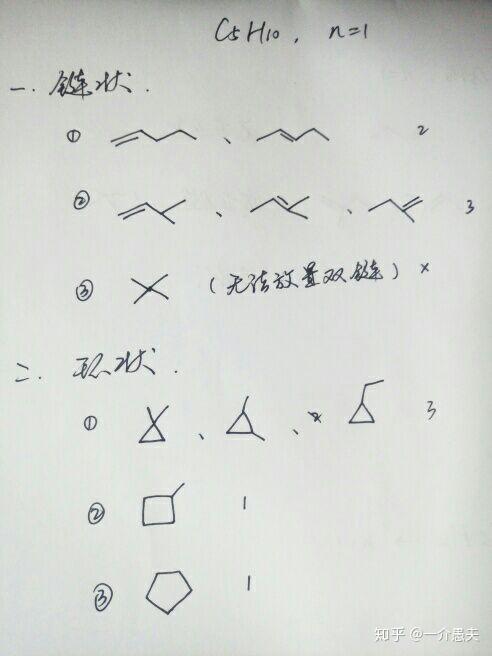 C5H10, n=1
一. 链状.
① 、 2
② 、 、 3
③ (无法放置双链) ×
二. 环状.
① 、 、 3
② 1
③ 1
知乎 @一介愚夫